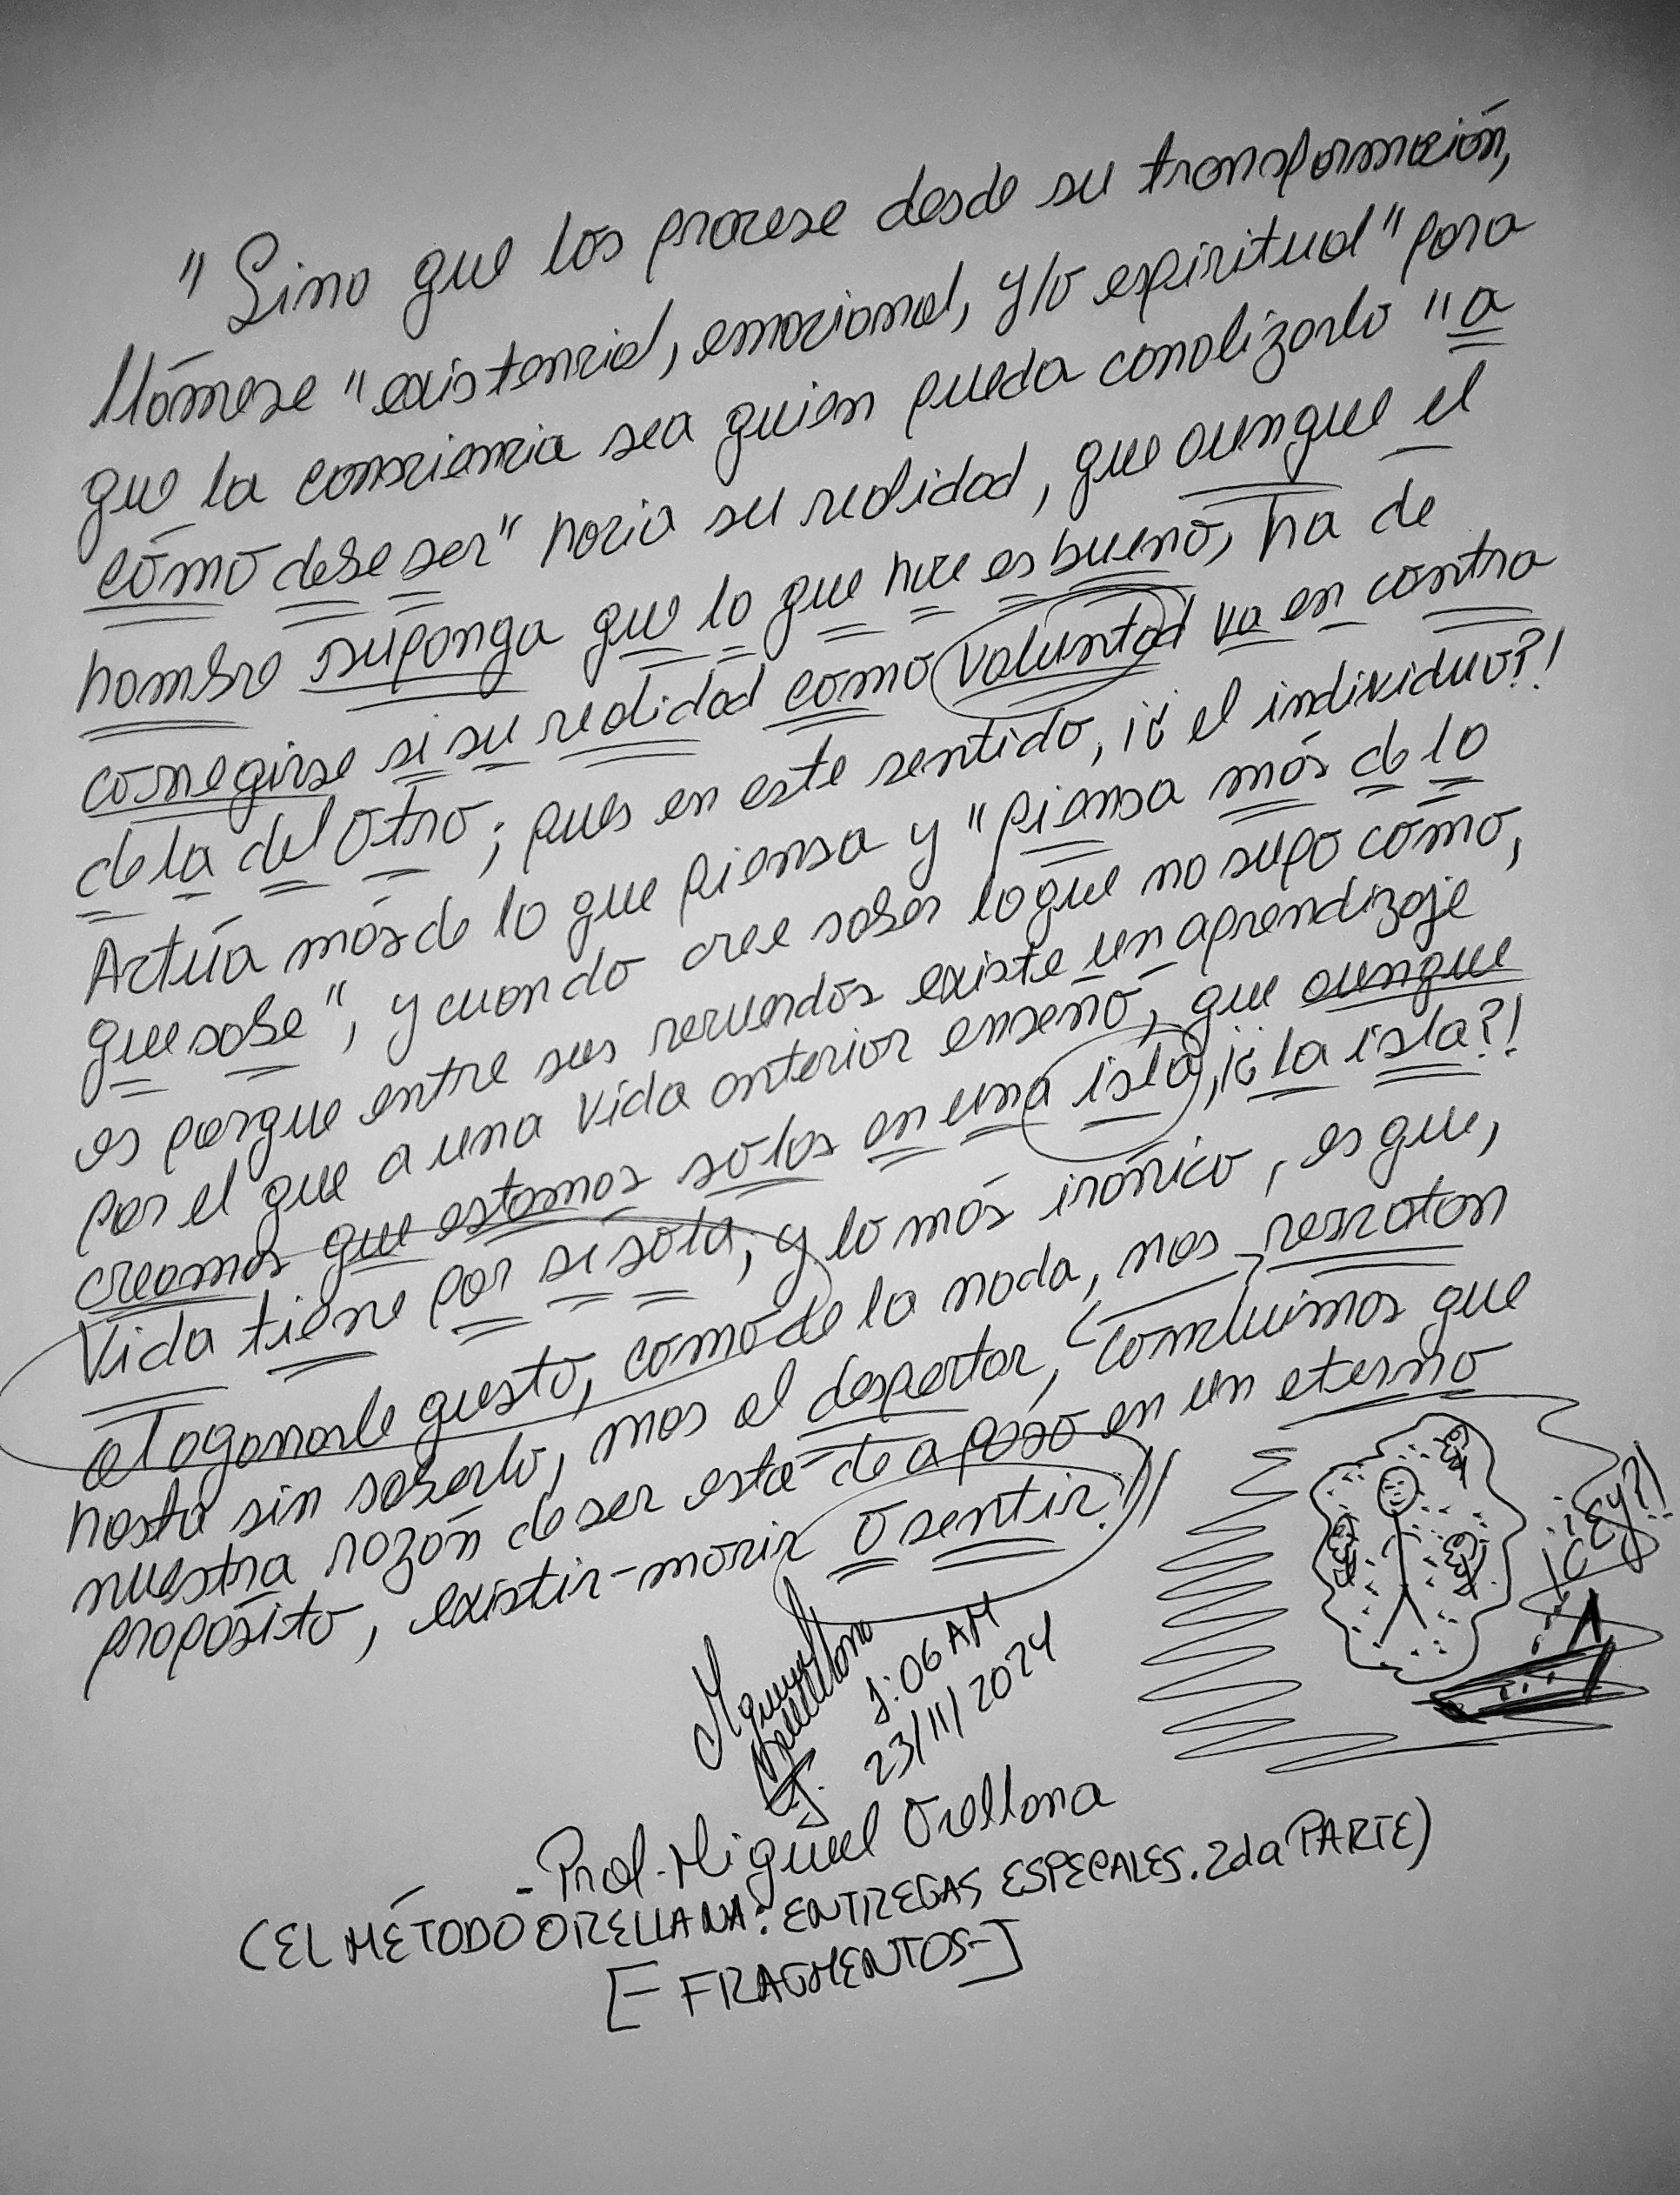 "Sino que los procese desde su transformación,
llámese "existencial, emocional, y/o espiritual" para
que la consciencia sea quien pueda canalizarlo "a
cómo debe ser" hacia su realidad, que aunque el
hombre suponga que lo que hace es bueno, ha de
corregirse si su realidad como voluntad va en contra
de la del otro; pues en este sentido, ¡¿el individuo?!
Actúa más de lo que piensa y "piensa más de lo
que sabe", y cuando cree saber lo que no supo cómo,
es porque entre sus recuerdos existe un aprendizaje
por el que a una vida anterior enseñó, que aunque
creamos que estamos solos en una isla, ¡¿la isla?!
Vida tiene por sí sola, y lo más irónico, es que,
al agarrarle gusto, como de la nada, nos rescatan
hasta sin saberlo, mas al despertar, concluimos que
nuestra razón de ser está de a paso en un eterno
propósito, existir-morir o sentir."
¡¿Ey?!
Miguel Orellana
J.
23/11/2024
-Prof. Miguel Orellana
(EL MÉTODO ORELLANA: ENTREGAS ESPECALES. 2da PARTE)
[-FRAGMENTOS-]